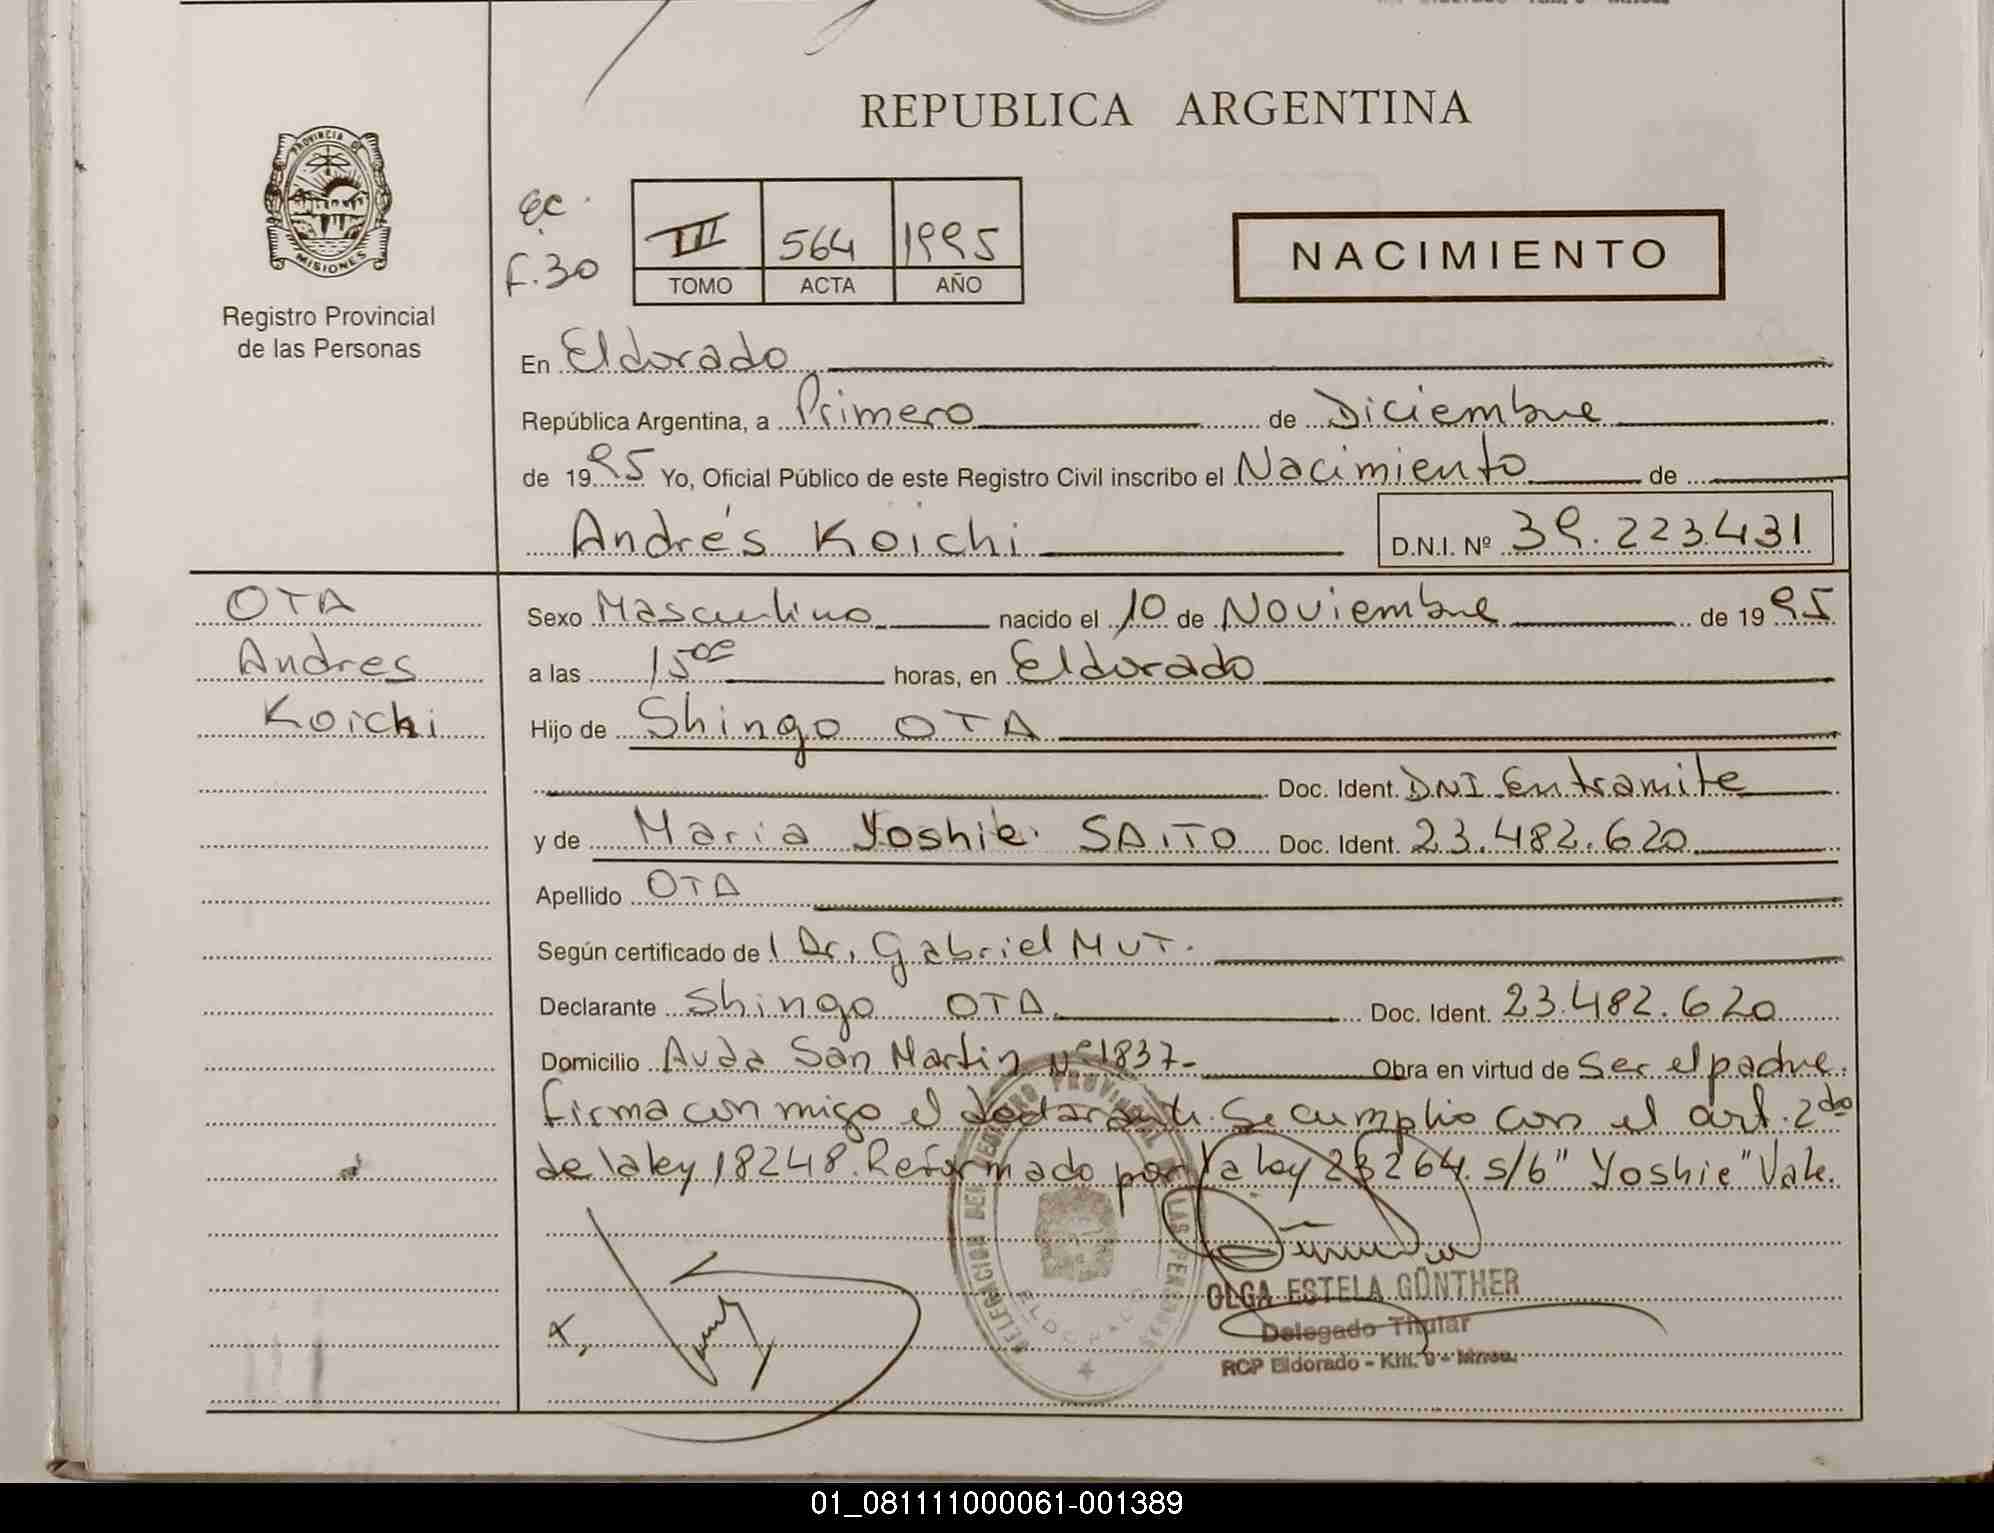 REPUBLICA ARGENTINA
PROVINCIA DE
MISIONES
Registro Provincial
de las Personas
F.30
III 564 1995
TOMO ACTA AÑO
NACIMIENTO
En Eldorado
República Argentina, a Primero de Diciembre
de 1995 Yo, Oficial Público de este Registro Civil inscribo el Nacimiento de
Andrés Koichi D.N.I. Nº 39.223.431
OTA
Andres
Koichi
Sexo Masculino nacido el 10 de Noviembre de 1995
a las 15ºº horas, en Eldorado
Hijo de Shingo OTA
Doc. Ident. DNI En tramite
y de Maria Yoshie SAITO Doc. Ident. 23.482.620
Apellido OTA
Según certificado del Dr. Gabriel MUT.
Declarante Shingo OTA Doc. Ident. 23.482.620
Domicilio Avda San Martin Nº 1837- Obra en virtud de Ser el padre.
firma con migo el declarante. Se cumplio con el art. 2do
de la ley 18248. Reformado por la ley 23264. s/b "Yoshie" Vale.
DELEGACION DEL REGISTRO PROVINCIAL DE LAS PERSONAS
ELDORADO
OLGA ESTELA GÜNTHER
Delegado Titular
RCP Eldorado - Km. 9 - Mnes.
01_081111000061-001389